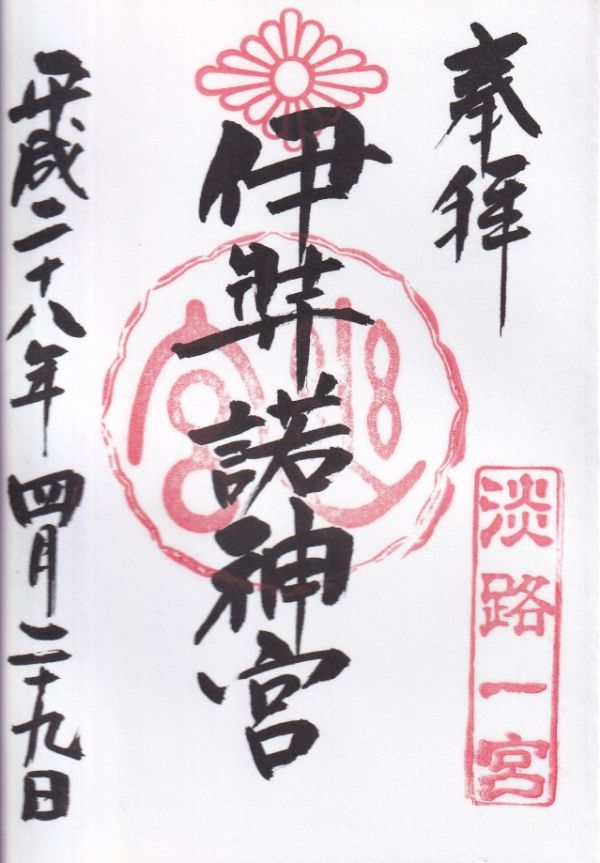 奉拝
淡路一宮
伊弉諾神宮
幽宮
平成二十八年四月二十九日